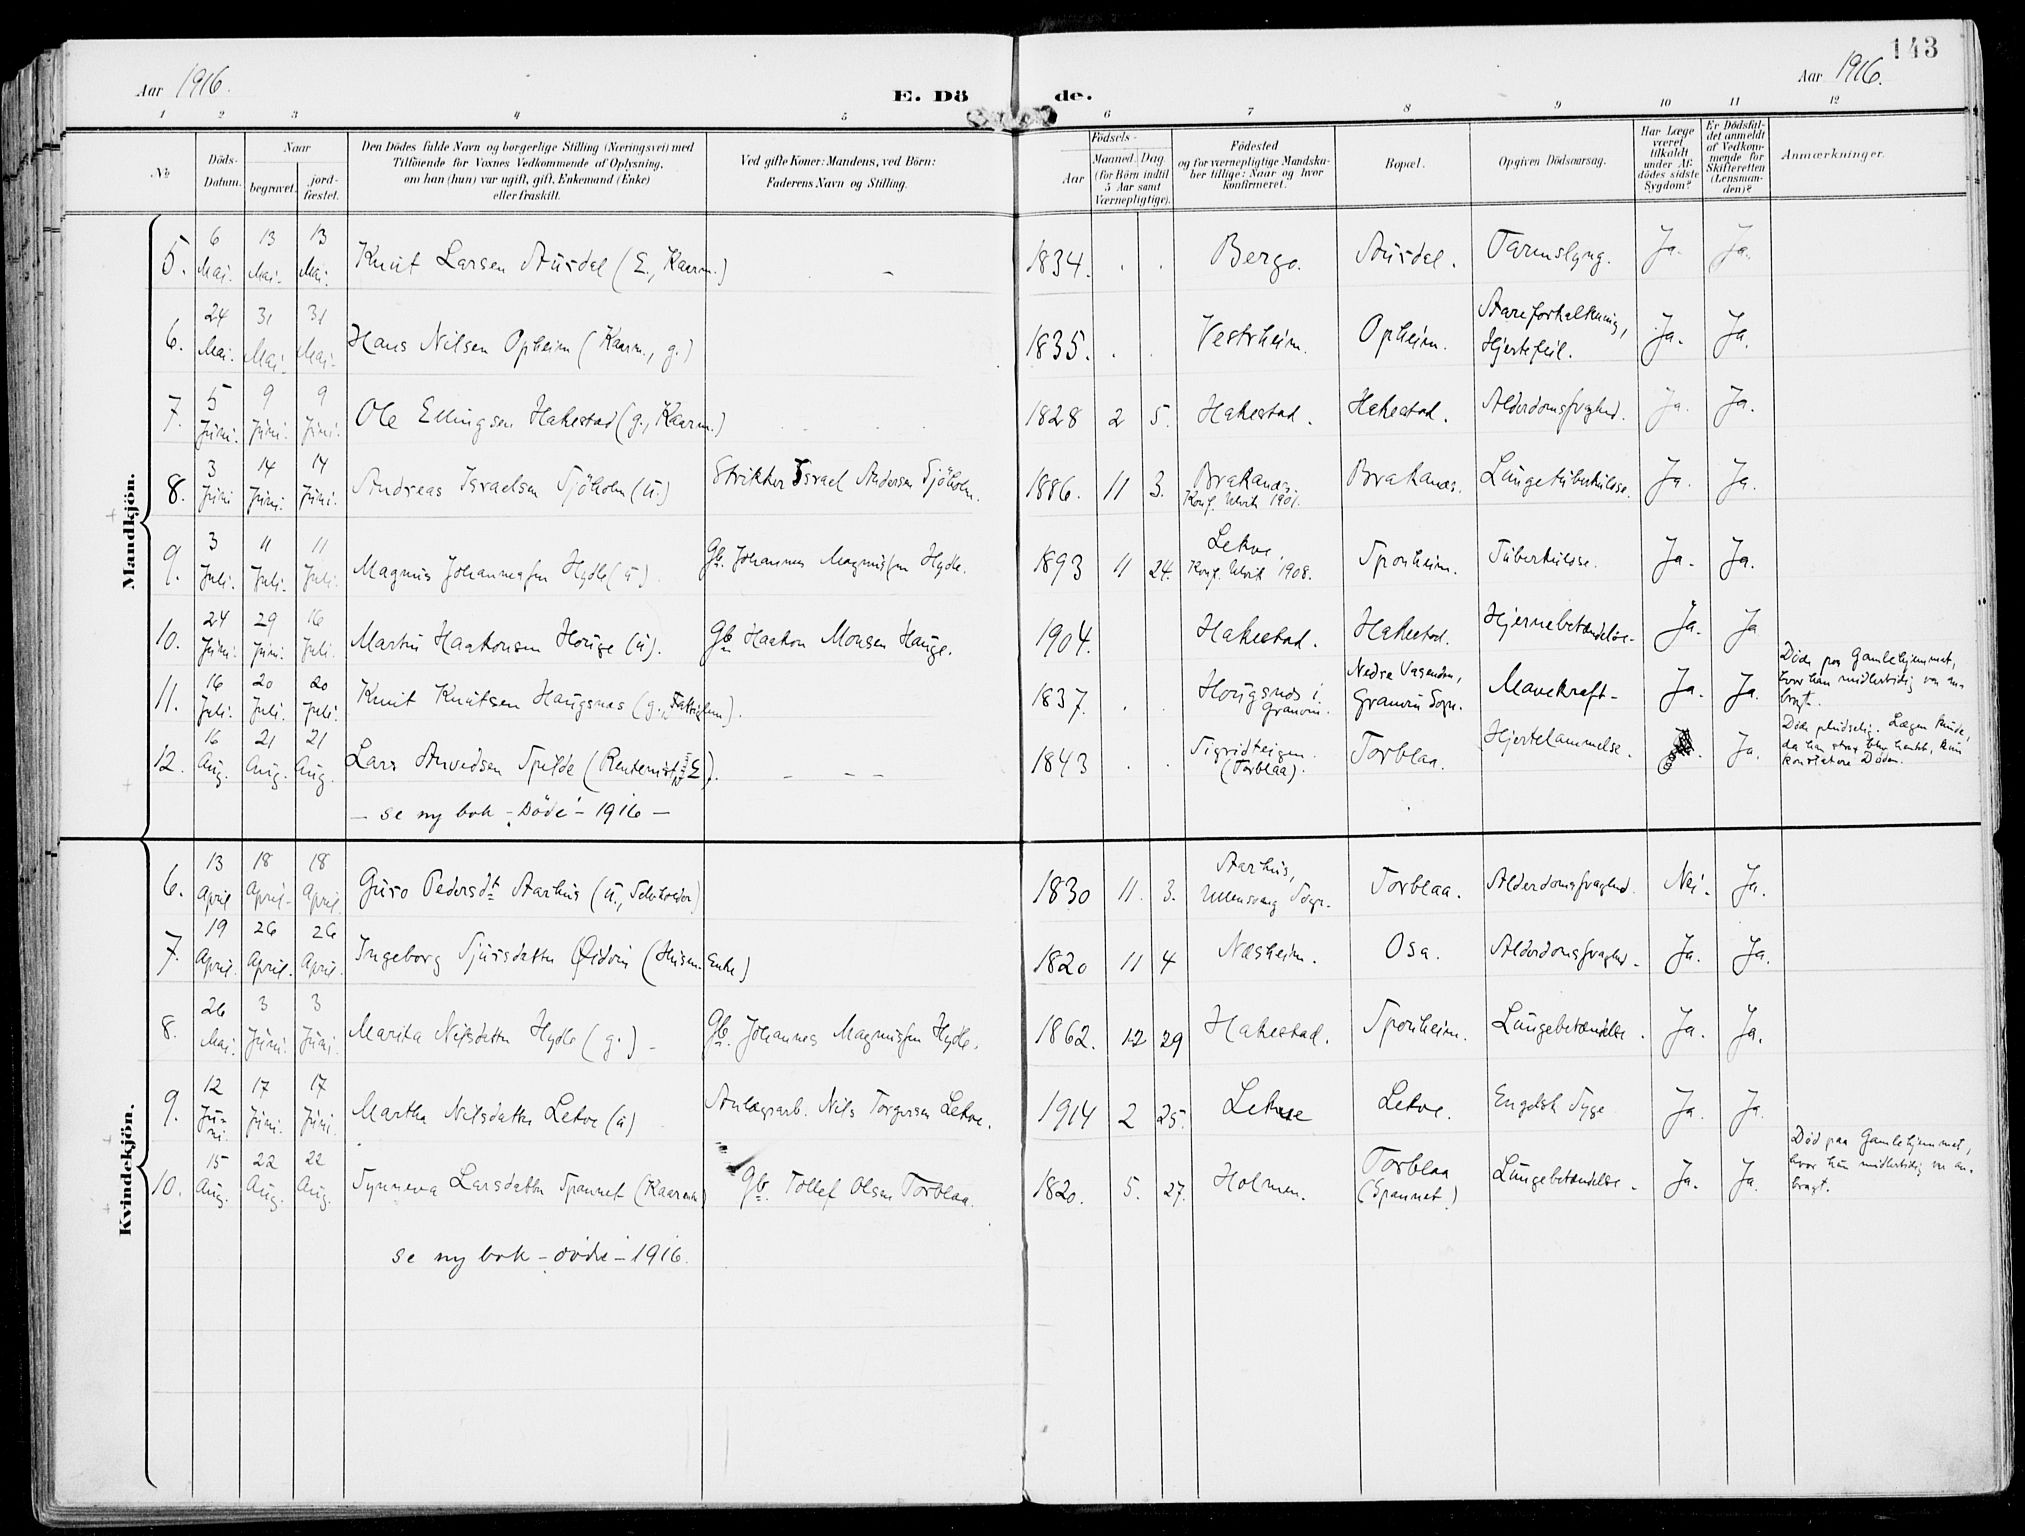 143
Aar 1916.
E. Dö de.
Aar 1916.
1 2 3 4 5 6 7 8 9 10 11 12
№
Döds-
Datum.
Naar
begravet.
jord-
fæstet.
Den Dödes fulde Navn og borgerlige Stilling (Næringsvei) med
Tilföiende for Voxnes Vedkommende af Oplysning,
om han (hun) var ugift, gift, Enkemand (Enke)
eller fraskilt.
Ved gifte Koner: Mandens, ved Börn:
Faderens Navn og Stilling.
Födsels-
Aar
Maaned. Dag
(for Börn indtil
5 Aar samt
Værnepligtige).
Födested
og for værnepligtige Mandska-
ber tillige: Naar og hvor
konfirmeret.
Bopæl.
Opgiven Dödsaarsag.
Har Læge
været
tilkaldt
under Af-
dödes sidste
Sygdom?
Er Dödsfal-
det anmeldt
af Vedkom-
mende for
Skifteretten
(Lensman-
den)?
Anmærkninger.
Mandkjön.
5. 6 Mai. 13 Mai. 13 Mai. Knut Larsen Ausdal (E., Kaarm.) – 1834. Bergo. Ausdal. Tarmslyng. Ja. Ja.
6. 24 Mai. 31 Mai. 31 Mai. Hans Nilsen Opheim (Kaarm., g.) 1835. Vestrheim. Opheim. Aareforkalkning, Hjertefeil. Ja. Ja.
7. 5 Juni. 9 Juni. 9 Juni. Ole Ellingsen Hakestad (g., Kaarm.) 1828 2 5. Hakestad. Hakestad. Alderdomssvaghed. Ja. Ja.
8. 3 Juni 14 Juni. 14 Juni. Andreas Israelsen Sjöholm (u.) Strikker Israel Andersen Sjöholm. 1886. 11 3. Brakanæs. Konf. Ulvik 1901. Brakanæs. Lungetuberkulose. Ja. Ja.
9. 3 Juli. 11 Juli. 11 Juli. Magnus Johannessen Hylle (u). Gb. Johannes Magnussen Hylle. 1893 11 24. Lekve. Konf. Ulvik 1908. Sponheim. Tuberkulose. Ja. Ja.
10. 24 Juni. 29 Juni. 16 Juli. Martin Haakonsen Houge (u). Gb Haakon Monsen Hauge. 1904. Hakestad. Hakestad. Hjernebetændelse. Ja. Ja
11. 16 Juli. 20 Juli. 20 Juli. Knut Knutsen Haugsnæs (g., Fattiglem). 1837. Hougsnæs i Granvin. Nedre Vasenden, Granvin Sogn. Mavekræft. Ja. Ja. Döde paa Gamlehjemmet, hvor han midlertidig var anbragt.
12. 16 Aug. 21 Aug. 21 Aug. Lars Arvedsen Spilde (Rentenist, E). – – – 1843 Sigridteigen (Torblaa). Torblaa. Hjertelammelse. Ja. Döde pludselig. Lægen kunde, da han strax blev hentet, kun konstatere Döden.
– se ny bok – Döde – 1916 –
Kvindekjön.
6. 13 April 18 April 18 April. Guro Pedersdt Aarhus (u., ) 1830 11. 3. Aarhus, Ullensvang Sogn. Torblaa. Alderdomssvaghed. Nei. Ja.
7. 19 April. 26 April. 26 April. Ingeborg Sjursdatter Öidvin (Husm. Enke) 1820 11 4 Næsheim. Osa. Alderdomssvaghed. Ja. Ja.
8. 26 Mai. 3 Juni. 3 Juni. Marita Nilsdatter Hylle (g.) Gb. Johannes Magnussen Hylle. 1862. 12 29 Hakestad. Sponheim. Lungebetændelse. Ja. Ja.
9. 12 Juni. 17 Juni. 17 Juni. Martha Nilsdatter Lekve (u) Anlægsarb. Nils Torgersen Lekve. 1914 2 25. Lekve Lekve. Engelsk Syge Ja. Ja.
10. 15 Aug. 22 Aug. 22 Aug. Synneva Larsdatter Spannet (Kaarenke) Gb. Tollef Olsen Torblaa. 1820. 5. 27. Holmen. Torblaa (Spannet.) Lungebetændelse. Ja. Ja. Död paa Gamlehjemmet, hvor hun midlertidig var anbragt.
se ny bok – döde – 1916.